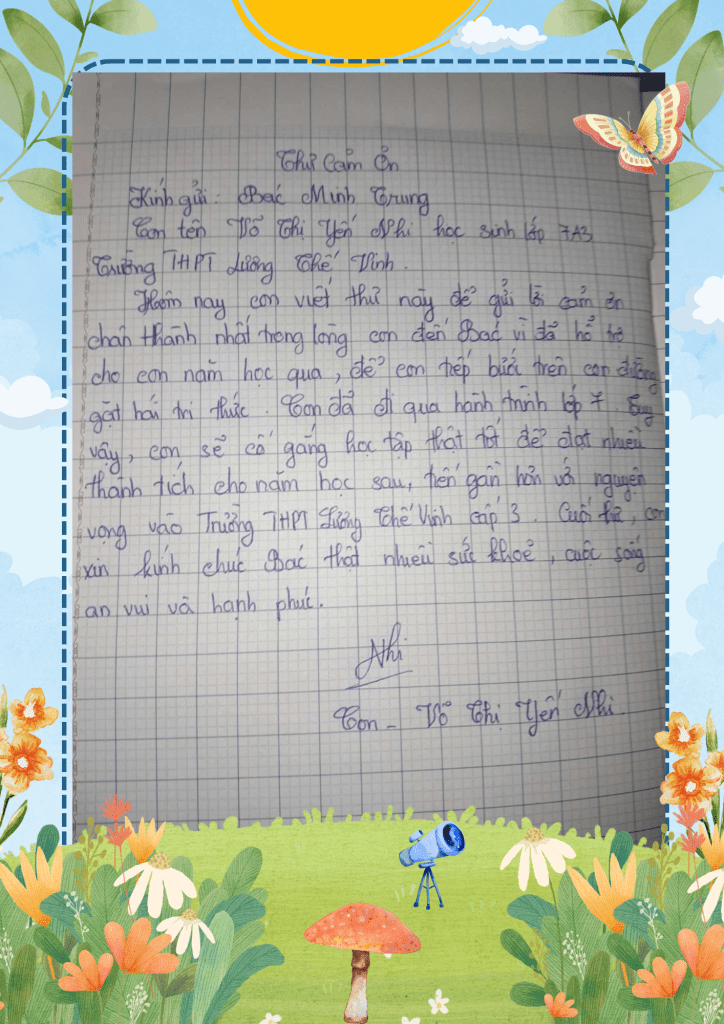 Thư Cảm Ơn
Kính gửi: Bác Minh Trung
Con tên Võ Thị Yến Nhi học sinh lớp 7A3
Trường THPT Lương Thế Vinh.
Hôm nay con viết thư này để gửi lời cảm ơn
chân thành nhất trong lòng con đến Bác vì đã hổ trợ
cho con năm học qua, để con tiếp bước trên con đường
gặt hái tri thức. Con đã đi qua hành trình lớp 7. Tuy
vậy, con sẽ cố gắng học tập thật tốt để đạt nhiều
thành tích cho năm học sau, tiến gần hơn với nguyện
vọng vào Trường THPT Lương Thế Vinh cấp 3. Cuối thư, con
xin kính chúc Bác thật nhiều sức khoẻ, cuộc sống
an vui và hạnh phúc.
Nhi
Con - Võ Thị Yến Nhi